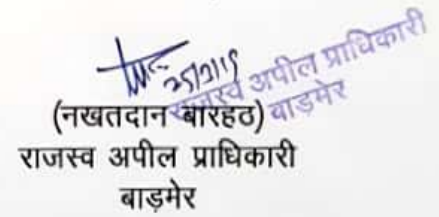 राजस्व अपील प्राधिकारी
बाड़मेर
(नखतदान बारहठ)
राजस्व अपील प्राधिकारी
बाड़मेर